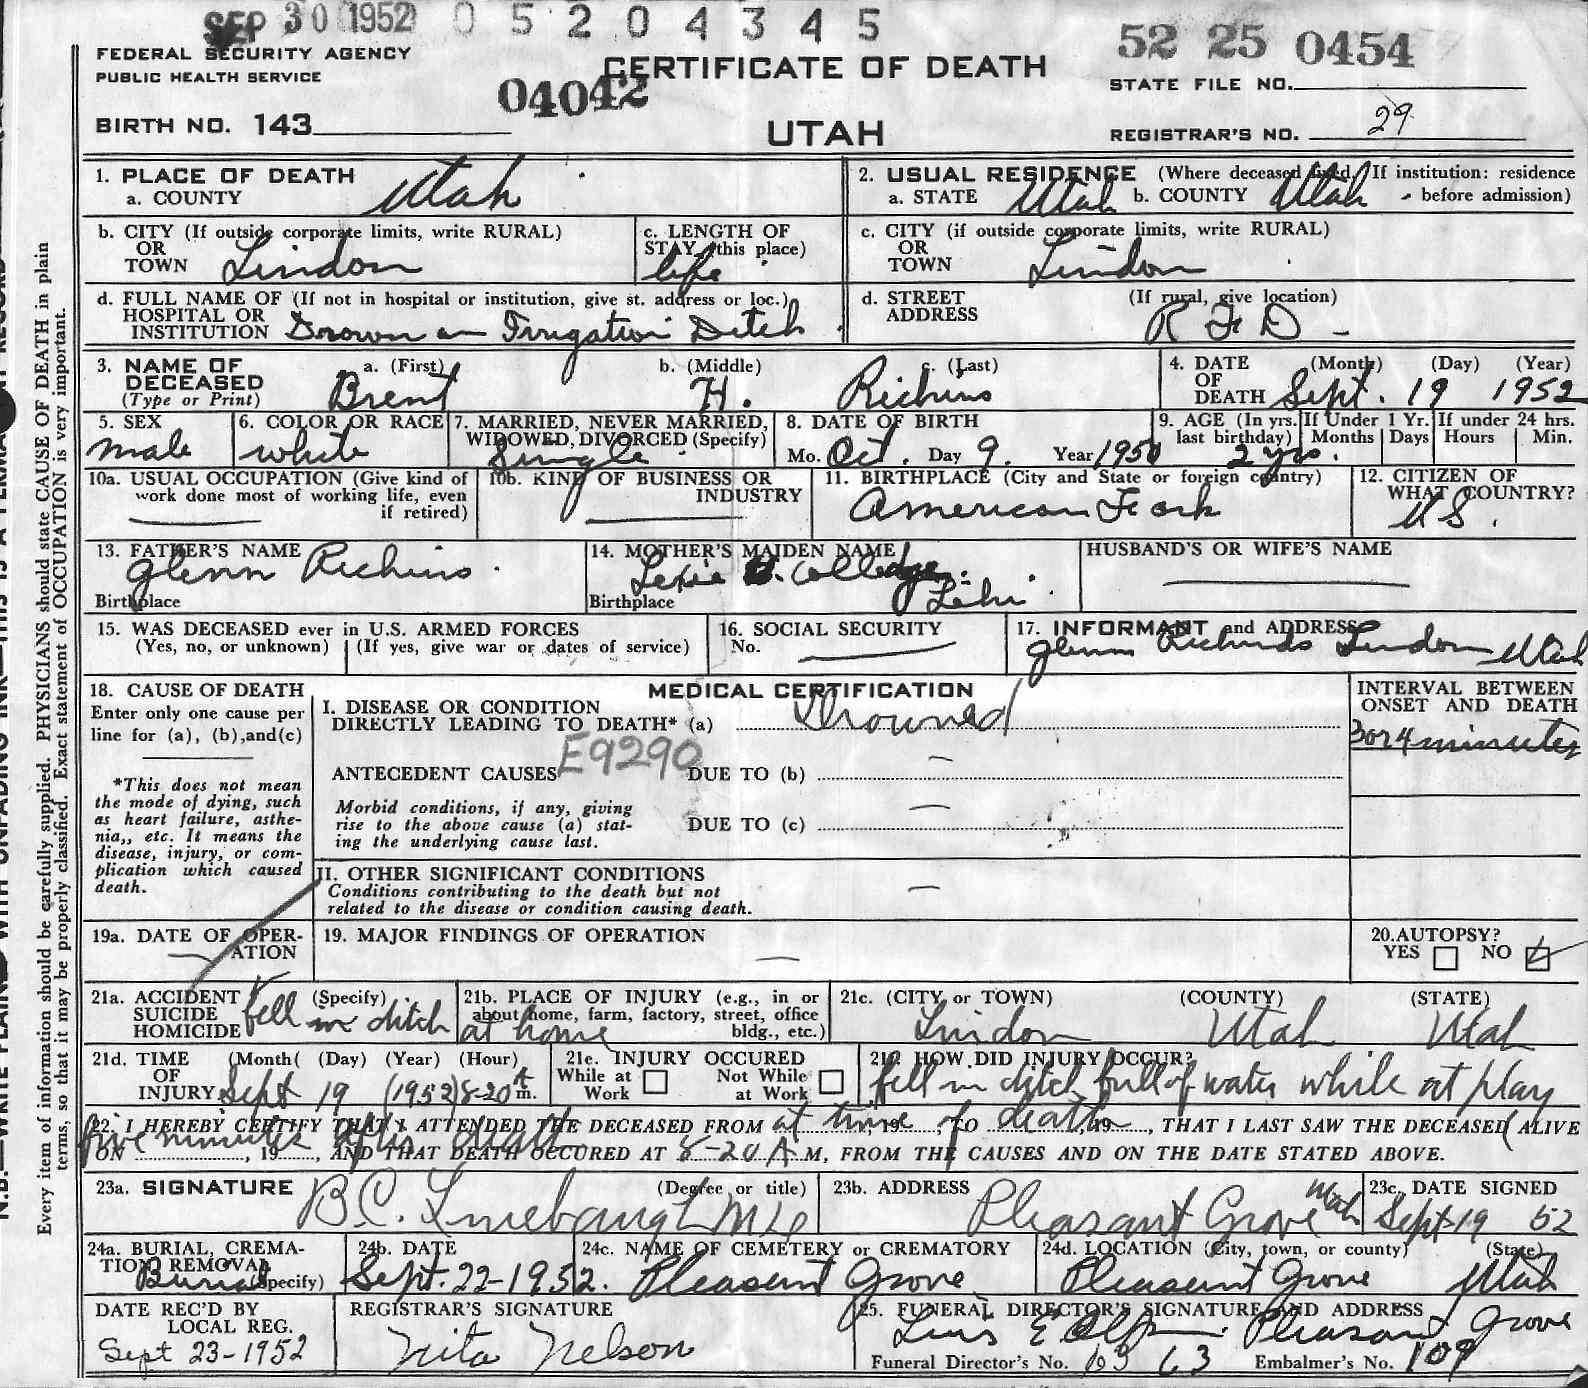 SEP 30 1952 0 5 2 0 4 3 4 5
52 25 0454
FEDERAL SECURITY AGENCY
PUBLIC HEALTH SERVICE
CERTIFICATE OF DEATH
STATE FILE NO.
04042
BIRTH NO. 143
UTAH
REGISTRAR'S NO. 29
1. PLACE OF DEATH
a. COUNTY Utah
2. USUAL RESIDENCE (Where deceased lived. If institution: residence
a. STATE Utah b. COUNTY Utah - before admission)
b. CITY (If outside corporate limits, write RURAL)
OR
TOWN Lindon
c. LENGTH OF
STAY (this place)
life
c. CITY (if outside corporate limits, write RURAL)
OR
TOWN Lindon
d. FULL NAME OF (If not in hospital or institution, give st. address or loc.)
HOSPITAL OR
INSTITUTION Drown in Irrigation Ditch
d. STREET (If rural, give location)
ADDRESS R F D -
3. NAME OF a. (First) b. (Middle) c. (Last)
DECEASED
(Type or Print) Brent H. Richins
4. DATE (Month) (Day) (Year)
OF
DEATH Sept. 19 1952
5. SEX
male
6. COLOR OR RACE
white
7. MARRIED, NEVER MARRIED,
WIDOWED, DIVORCED (Specify)
Single
8. DATE OF BIRTH
Mo. Oct. Day 9. Year 1950
9. AGE (In yrs. If Under 1 Yr. If under 24 hrs.
last birthday) Months Days Hours Min.
2 yrs.
10a. USUAL OCCUPATION (Give kind of
work done most of working life, even
if retired)
10b. KIND OF BUSINESS OR
INDUSTRY
11. BIRTHPLACE (City and State or foreign country)
American Fork
12. CITIZEN OF
WHAT COUNTRY?
U S.
13. FATHER'S NAME
Glenn Richins.
Birthplace
14. MOTHER'S MAIDEN NAME
Birthplace Lehi.
HUSBAND'S OR WIFE'S NAME
15. WAS DECEASED ever in U.S. ARMED FORCES
(Yes, no, or unknown) (If yes, give war or dates of service)
16. SOCIAL SECURITY
No.
17. INFORMANT and ADDRESS
Glenn Richinds Lindon Utah
18. CAUSE OF DEATH
Enter only one cause per
line for (a), (b),and(c)
*This does not mean
the mode of dying, such
as heart failure, asthe-
nia,, etc. It means the
disease, injury, or com-
plication which caused
death.
MEDICAL CERTIFICATION
I. DISEASE OR CONDITION
DIRECTLY LEADING TO DEATH* (a) Drowned
E9290
ANTECEDENT CAUSES DUE TO (b) —
Morbid conditions, if any, giving
rise to the above cause (a) stat-
ing the underlying cause last.
DUE TO (c) —
II. OTHER SIGNIFICANT CONDITIONS
Conditions contributing to the death but not
related to the disease or condition causing death.
—
INTERVAL BETWEEN
ONSET AND DEATH
3 or 4 minutes
19a. DATE OF OPER-
ATION —
19. MAJOR FINDINGS OF OPERATION
—
20.AUTOPSY?
YES NO
21a. ACCIDENT (Specify)
SUICIDE
HOMICIDE fell in ditch
21b. PLACE OF INJURY (e.g., in or
about home, farm, factory, street, office
bldg., etc.)
at home
21c. (CITY or TOWN) (COUNTY) (STATE)
Lindon Utah Utah
21d. TIME (Month( (Day) (Year) (Hour)
OF
INJURY Sept 19 (1952) 8-20 A m.
21e. INJURY OCCURED
While at Work Not While at Work
21f. HOW DID INJURY OCCUR?
fell in ditch full of water while at play
22. I HEREBY CERTIFY THAT I ATTENDED THE DECEASED FROM at time, 19 , TO of death, 19 , THAT I LAST SAW THE DECEASED (ALIVE
five minutes after death
ON , 19 , AND THAT DEATH OCCURED AT 8-20 A M, FROM THE CAUSES AND ON THE DATE STATED ABOVE.
23a. SIGNATURE (Degree or title)
B.C. Linebaugh MD
23b. ADDRESS
Pleasant Grove Utah
23c. DATE SIGNED
Sept-19 52
24a. BURIAL, CREMA-
TION REMOVAL
Burial (Specify)
24b. DATE
Sept. 22-1952.
24c. NAME OF CEMETERY or CREMATORY
Pleasant Grove
24d. LOCATION (City, town, or county) (State)
Pleasant Grove Utah
DATE REC'D BY
LOCAL REG.
Sept 23-1952
REGISTRAR'S SIGNATURE
Nita Nelson
25. FUNERAL DIRECTOR'S SIGNATURE AND ADDRESS
Pleasant Grove
Funeral Director's No. Embalmer's No. 109
Every item of information should be carefully supplied. PHYSICIANS should state CAUSE OF DEATH in plain
terms, so that it may be properly classified. Exact statement of OCCUPATION is very important.